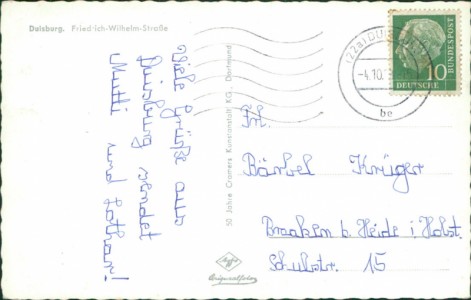 Duisburg. Friedrich-Wilhelm-Straße
Viele Grüße aus
Duisburg sendet
Mutti und Lothar!
50 Jahre Cramers Kunstanstalt KG., Dortmund
(22a) DU
-4.10.
be
10
DEUTSCHE
BUNDESPOST
Frl.
Bärbel Krüger
Braaken b. Heide i. Holst.
Schulstr. 15
Agfa
Originalfoto